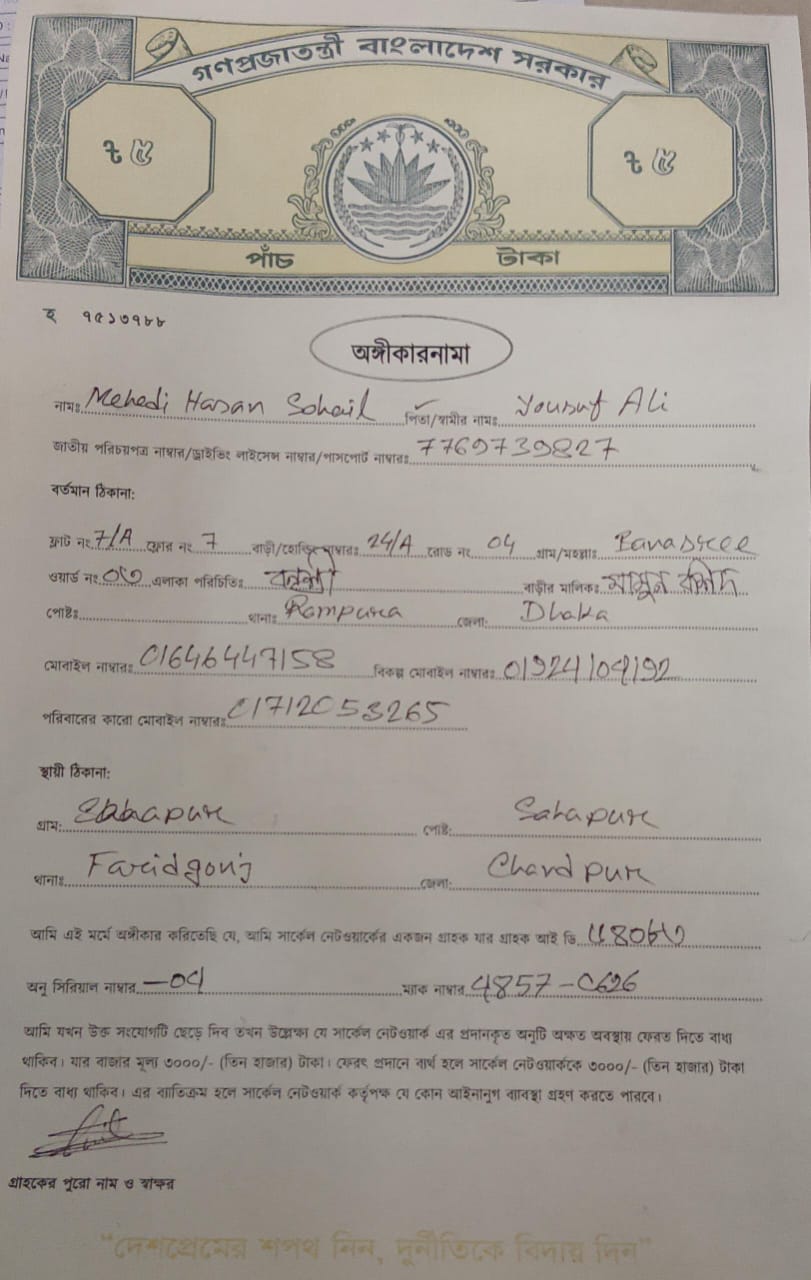 গণপ্রজাতন্ত্রী বাংলাদেশ সরকার
৳ ৫ ৳ ৫
পাঁচ টাকা
হ ৭৫১৩৭৮৮
অঙ্গীকারনামা
নামঃ Mehedi Hasan Sohail পিতা/স্বামীর নামঃ Yousuf Ali
জাতীয় পরিচয়পত্র নাম্বার/ড্রাইভিং লাইসেন্স নাম্বার/পাসপোর্ট নাম্বারঃ 7769739827
বর্তমান ঠিকানা:
ফ্লাট নং 7/A ফ্লোর নং 7 বাড়ী/হোল্ডিং নাম্বারঃ 24/A রোড নং 04 গ্রাম/মহল্লাঃ Banasree
ওয়ার্ড নং এলাকা পরিচিতিঃ বাড়ীর মালিকঃ মামুন রশীদ
পোষ্টঃ থানাঃ Rampura জেলা: Dhaka
মোবাইল নাম্বারঃ 01646447158 বিকল্প মোবাইল নাম্বারঃ
পরিবারের কারো মোবাইল নাম্বারঃ 01712053265
স্থায়ী ঠিকানা:
গ্রাম: পোষ্ট: Sahapur
থানাঃ Faridgonj জেলা: Chandpur
আমি এই মর্মে অঙ্গীকার করিতেছি যে, আমি সার্কেল নেটওয়ার্কের একজন গ্রাহক যার গ্রাহক আই ডি
অনু সিরিয়াল নাম্বার -04 ম্যাক নাম্বার 4857-C626
আমি যখন উক্ত সংযোগটি ছেড়ে দিব তখন উল্লেক্ষ্য যে সার্কেল নেটওয়ার্ক এর প্রদানকৃত অনুটি অক্ষত অবস্থায় ফেরত দিতে বাধ্য
থাকিব। যার বাজার মূল্য ৩০০০/- (তিন হাজার) টাকা। ফেরৎ প্রদানে ব্যর্থ হলে সার্কেল নেটওয়ার্ককে ৩০০০/- (তিন হাজার) টাকা
দিতে বাধ্য থাকিব। এর ব্যতিক্রম হলে সার্কেল নেটওয়ার্ক কর্তৃপক্ষ যে কোন আইনানুগ ব্যাবস্থা গ্রহণ করতে পারবে।
গ্রাহকের পুরো নাম ও স্বাক্ষর
“দেশপ্রেমের শপথ নিন, দুর্নীতিকে বিদায় দিন”